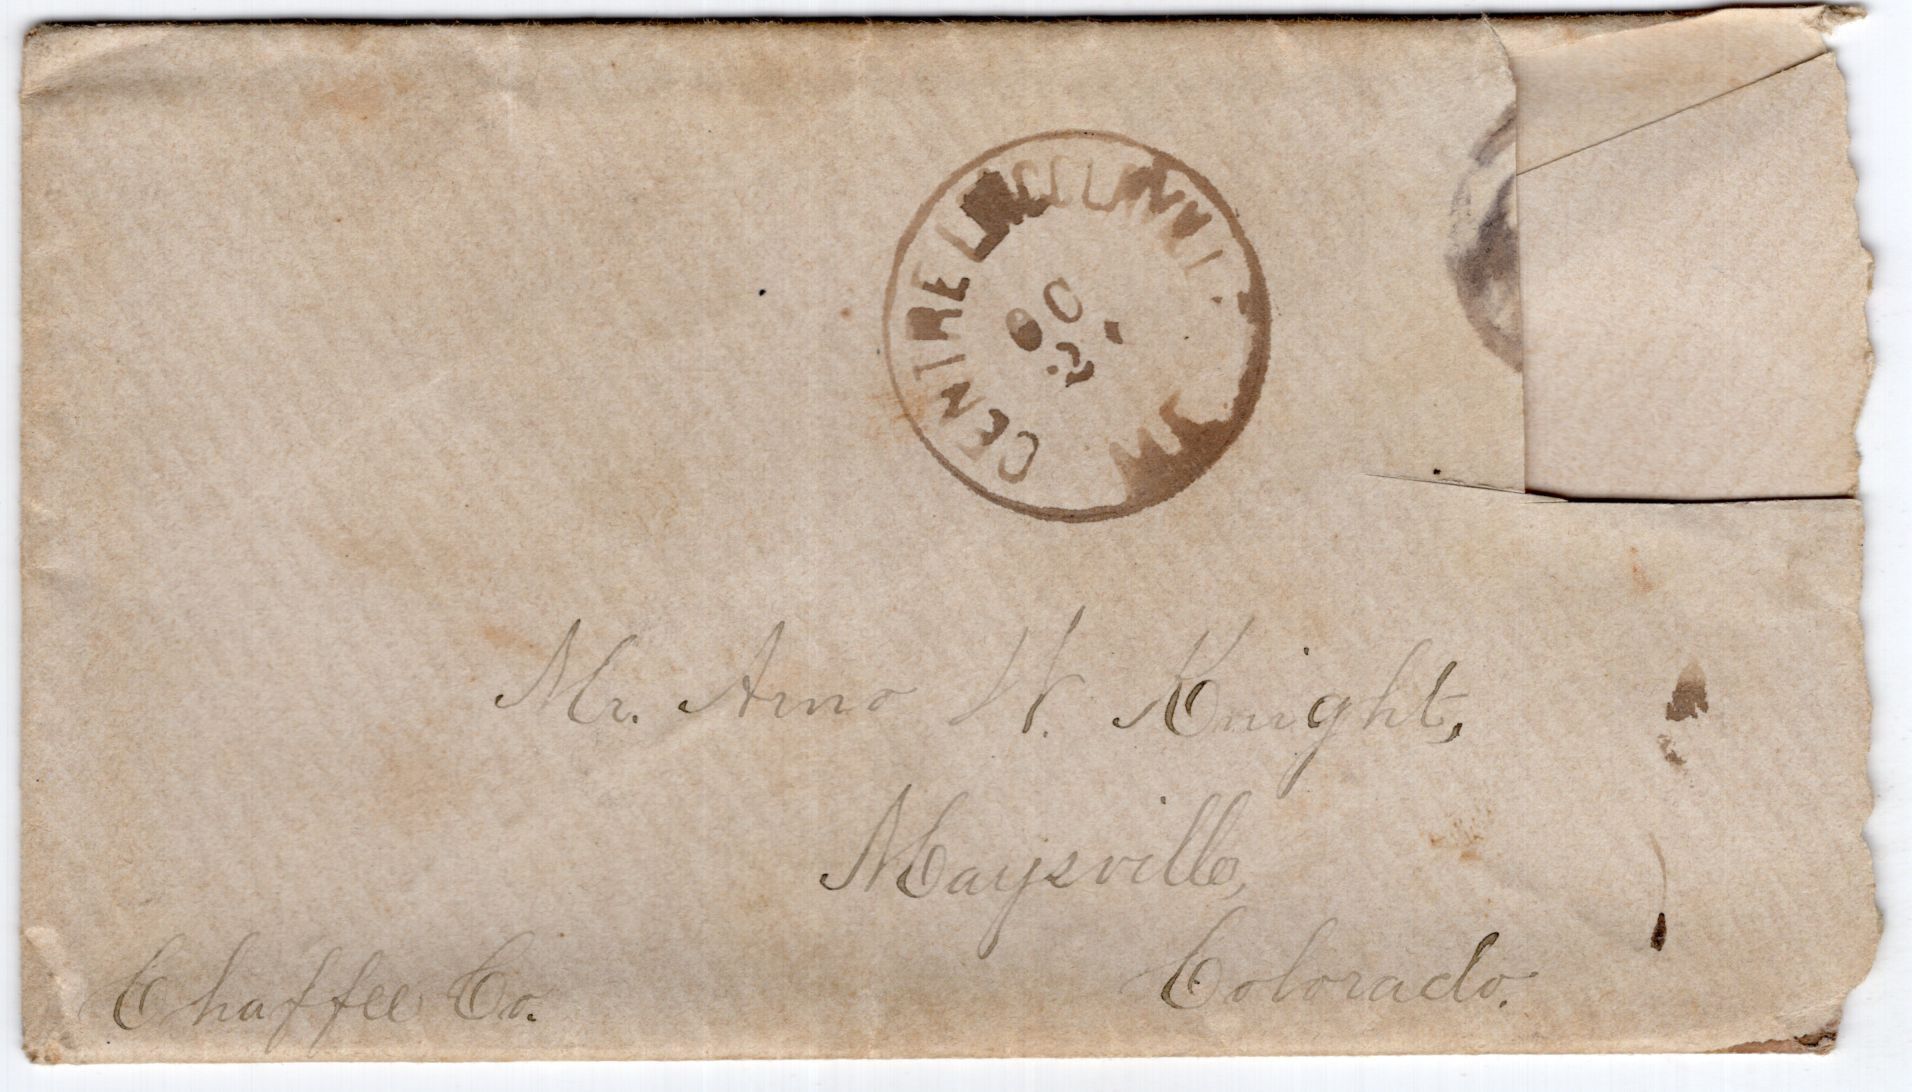 CENTRE LINCOLNVILLE
ME
OC
2
Mr. Arno W. Knight,
Maysville,
Colorado.
Chaffee Co.